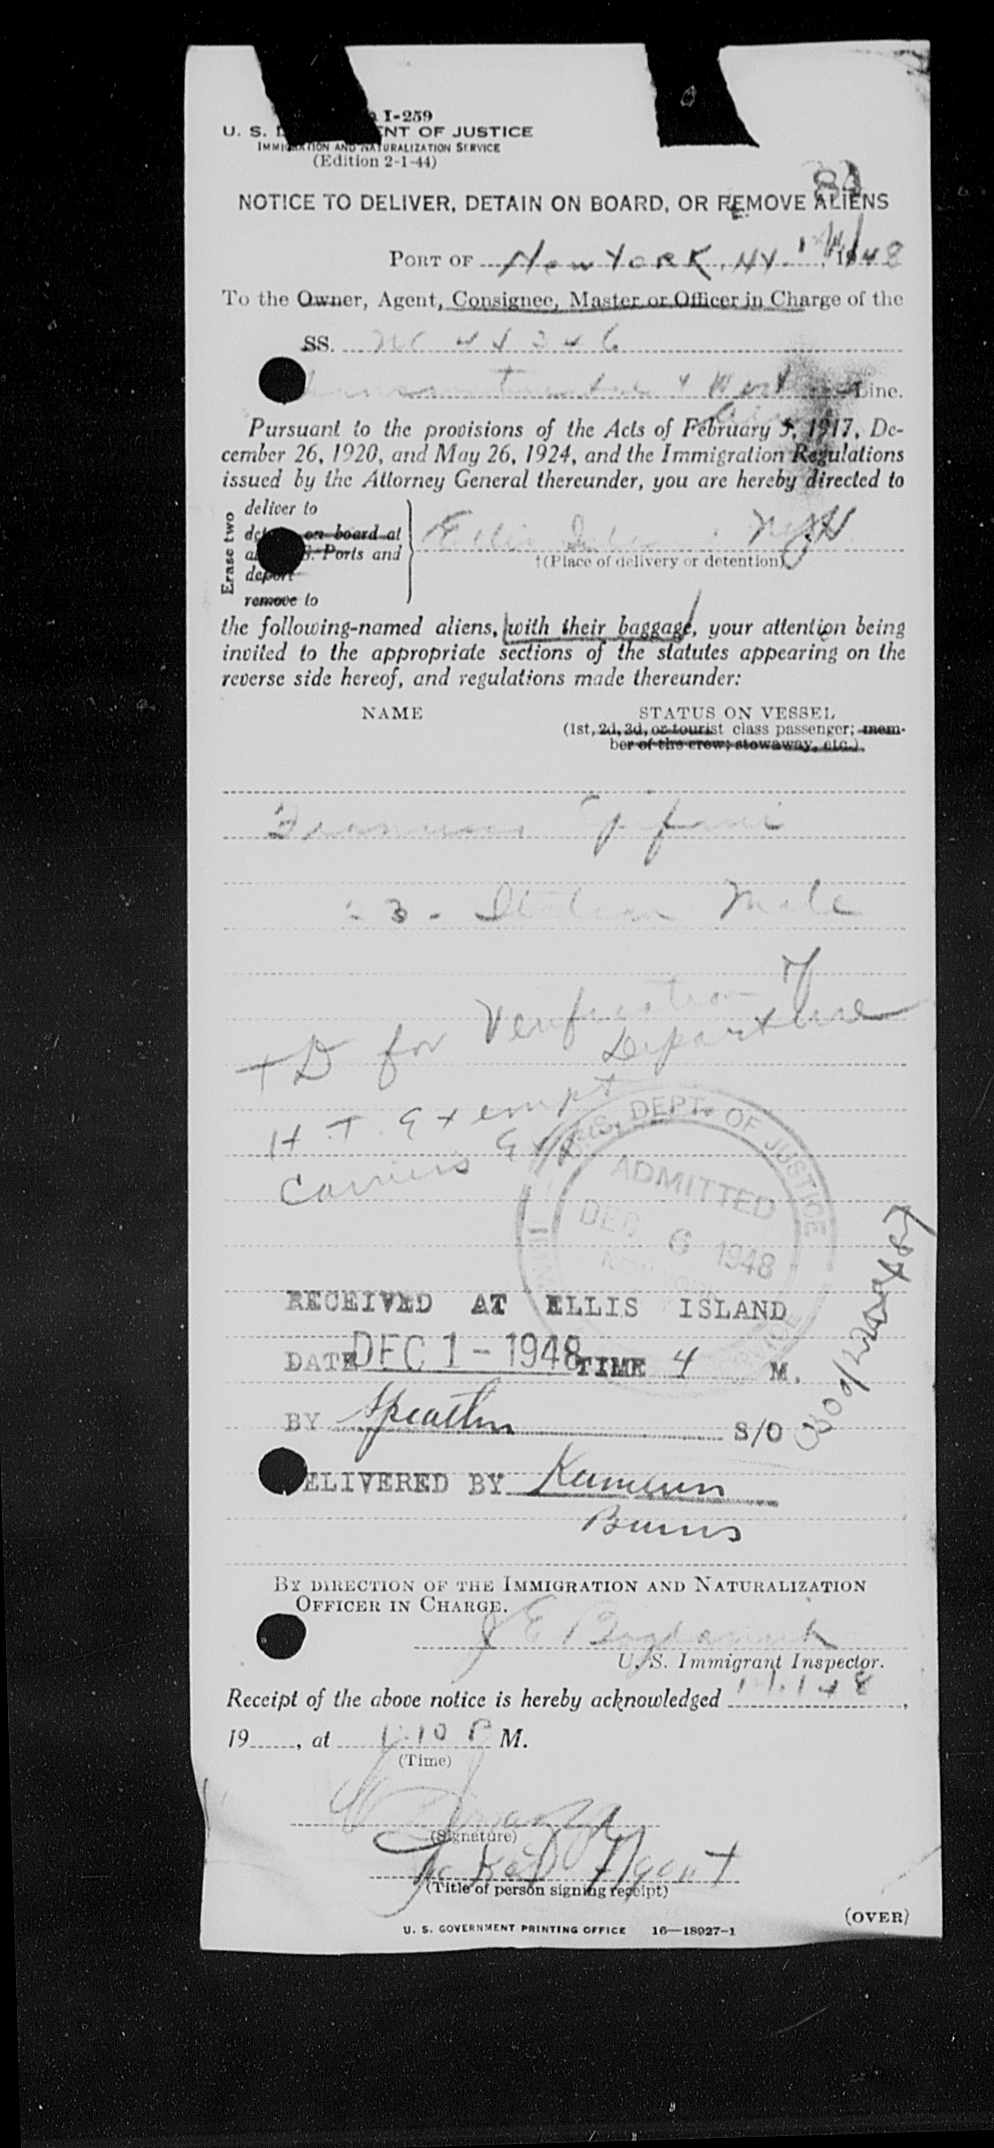 I-259
U. S. D ENT OF JUSTICE
IMMIGRATION AND NATURALIZATION SERVICE
(Edition 2-1-44)
83
NOTICE TO DELIVER, DETAIN ON BOARD, OR REMOVE ALIENS
PORT OF New York, NY. 1948
To the Owner, Agent, Consignee, Master or Officer in Charge of the
SS. NC 44346
& West Line.
Pursuant to the provisions of the Acts of February 5, 1917, De-
cember 26, 1920, and May 26, 1924, and the Immigration Regulations
issued by the Attorney General thereunder, you are hereby directed to
Erase two
deliver to
on board at
Ports and
deport
remove to
Ellis Island NYH
†(Place of delivery or detention)
the following-named aliens, with their baggage, your attention being
invited to the appropriate sections of the statutes appearing on the
reverse side hereof, and regulations made thereunder:
NAME STATUS ON VESSEL
(1st, 2d, 3d, or tourist class passenger; mem-
ber of the crew; stowaway, etc.)
Francesco
3 - Italian Male
TD for Verification of
Departure
H.T. Exempt
Carriers Exp
U.S. DEPT. OF JUSTICE
ADMITTED
DEC 6 1948
NEW YORK
RECEIVED AT ELLIS ISLAND
DATE DEC 1 - 1948 TIME 4 M.
BY S/O
DELIVERED BY
Burns
BY DIRECTION OF THE IMMIGRATION AND NATURALIZATION
OFFICER IN CHARGE.
J E
U. S. Immigrant Inspector.
Receipt of the above notice is hereby acknowledged 12.1.48,
19......, at 1:10 P M.
(Time)
(Signature)
Ticket Agent
(Title of person signing receipt)
(OVER)
U. S. GOVERNMENT PRINTING OFFICE 16—18927-1